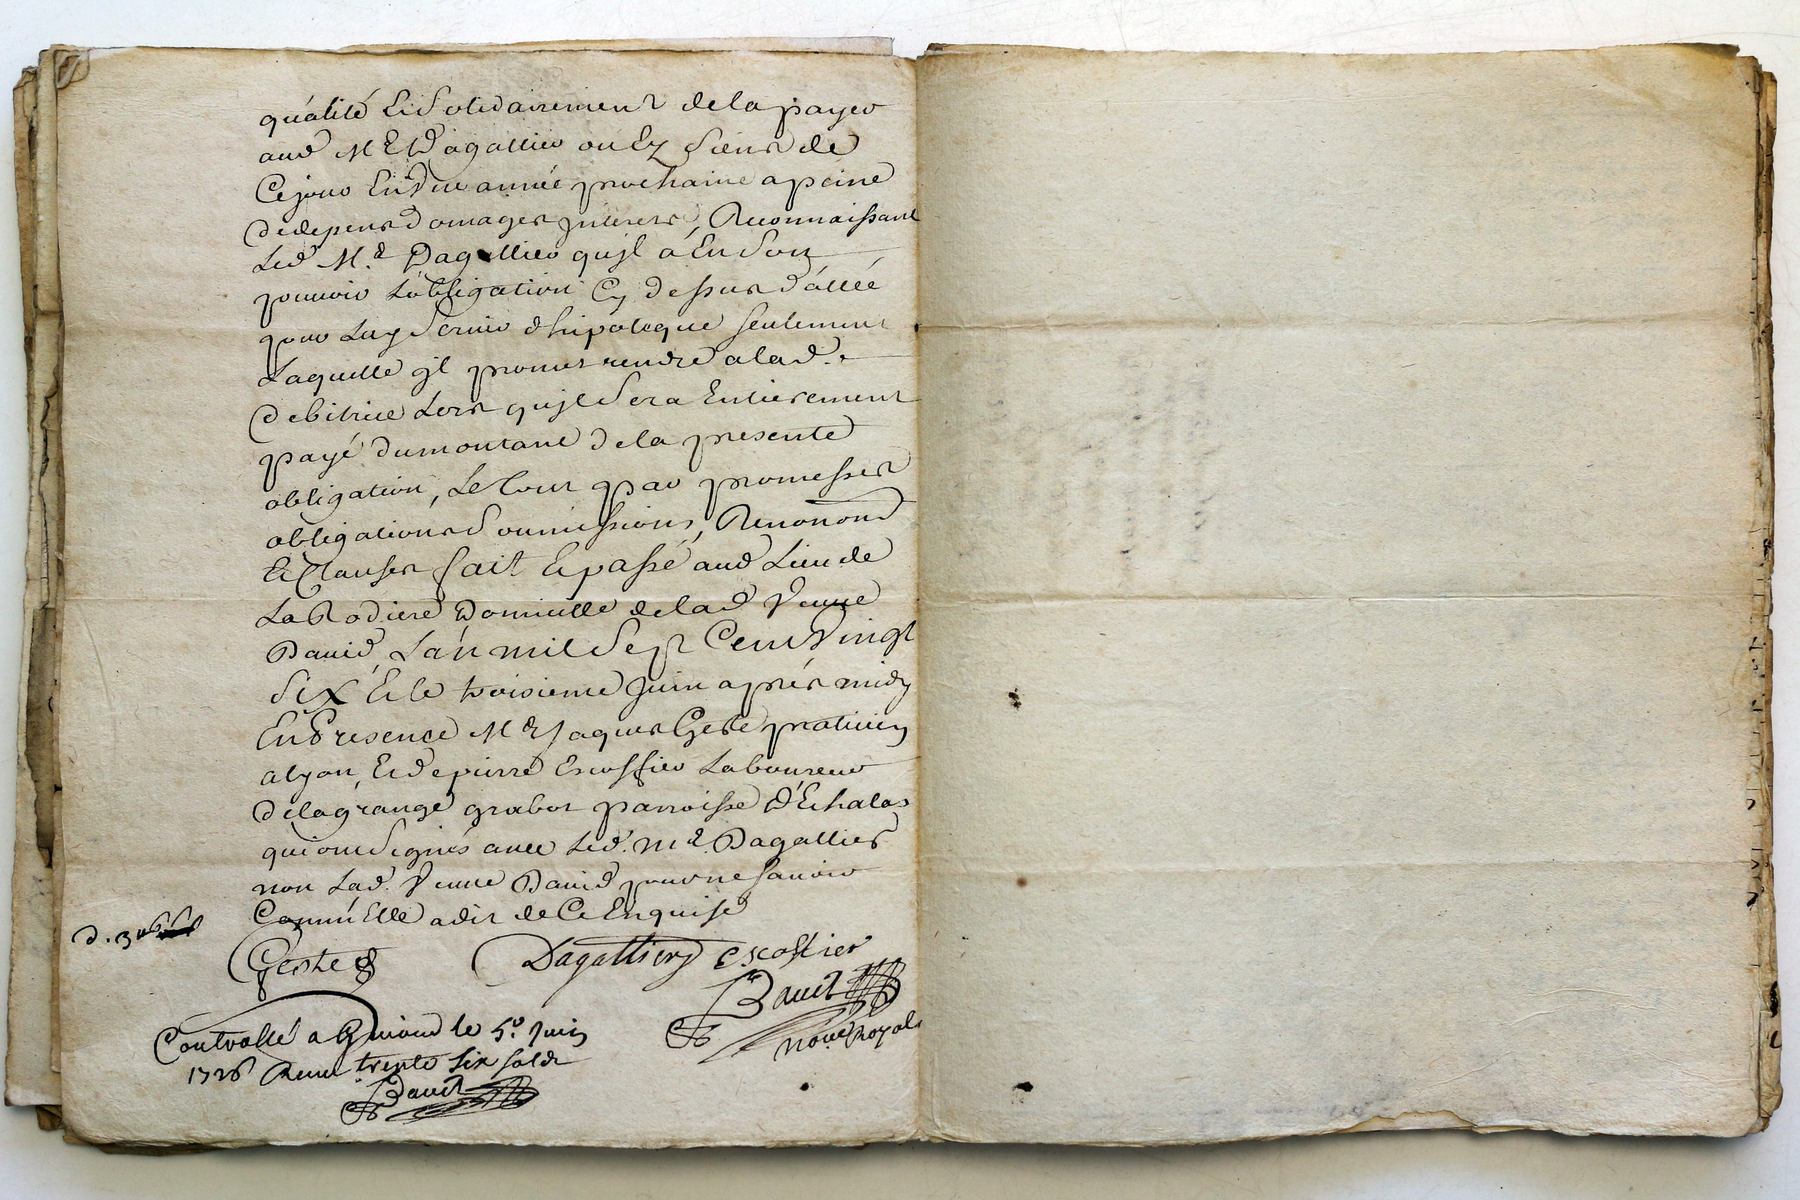 quálité Et Solidairement de la payer
aud Me Dagallier ou Ez Siens de
Ce jour En Une année prochaine a peine
de depens domages jnterets, Reconnaissant
Led Me Dagallier qujl á En Son
pouvoir Lobligation Cy dessus dáttéé
pour Luy Servir dhipoteque seulement
Laquelle jl promet rendre a lad.
debitrice Lors qujl Sera Entierement
payé du montant de la presente
obligation, Le tout par promesses
obligations Soumissions, Renonond
Et Clauses fait Et passé aud Lieu de
La Rodiere Domicille de lad Veuve
David, Lán mil Sept Cent Vingt
Six Et le troisieme Juin aprés midy
En Presence Me Jaques Geste praticien
a lyon, Et de pierre Escoffier Laboureur
de la grange grabot parroisse d'Echalas
qui ont Signés avec Led. Me. Dagallier
non Lad. Veuve David pour ne Savoir
Comm Elle a dit de Ce Enquise
d. 3
Geste Dagallier Escoffier
Bauet
Notre Royal
Controllé a le 5e. Juin
1726 Receu trente six sols
Bauet